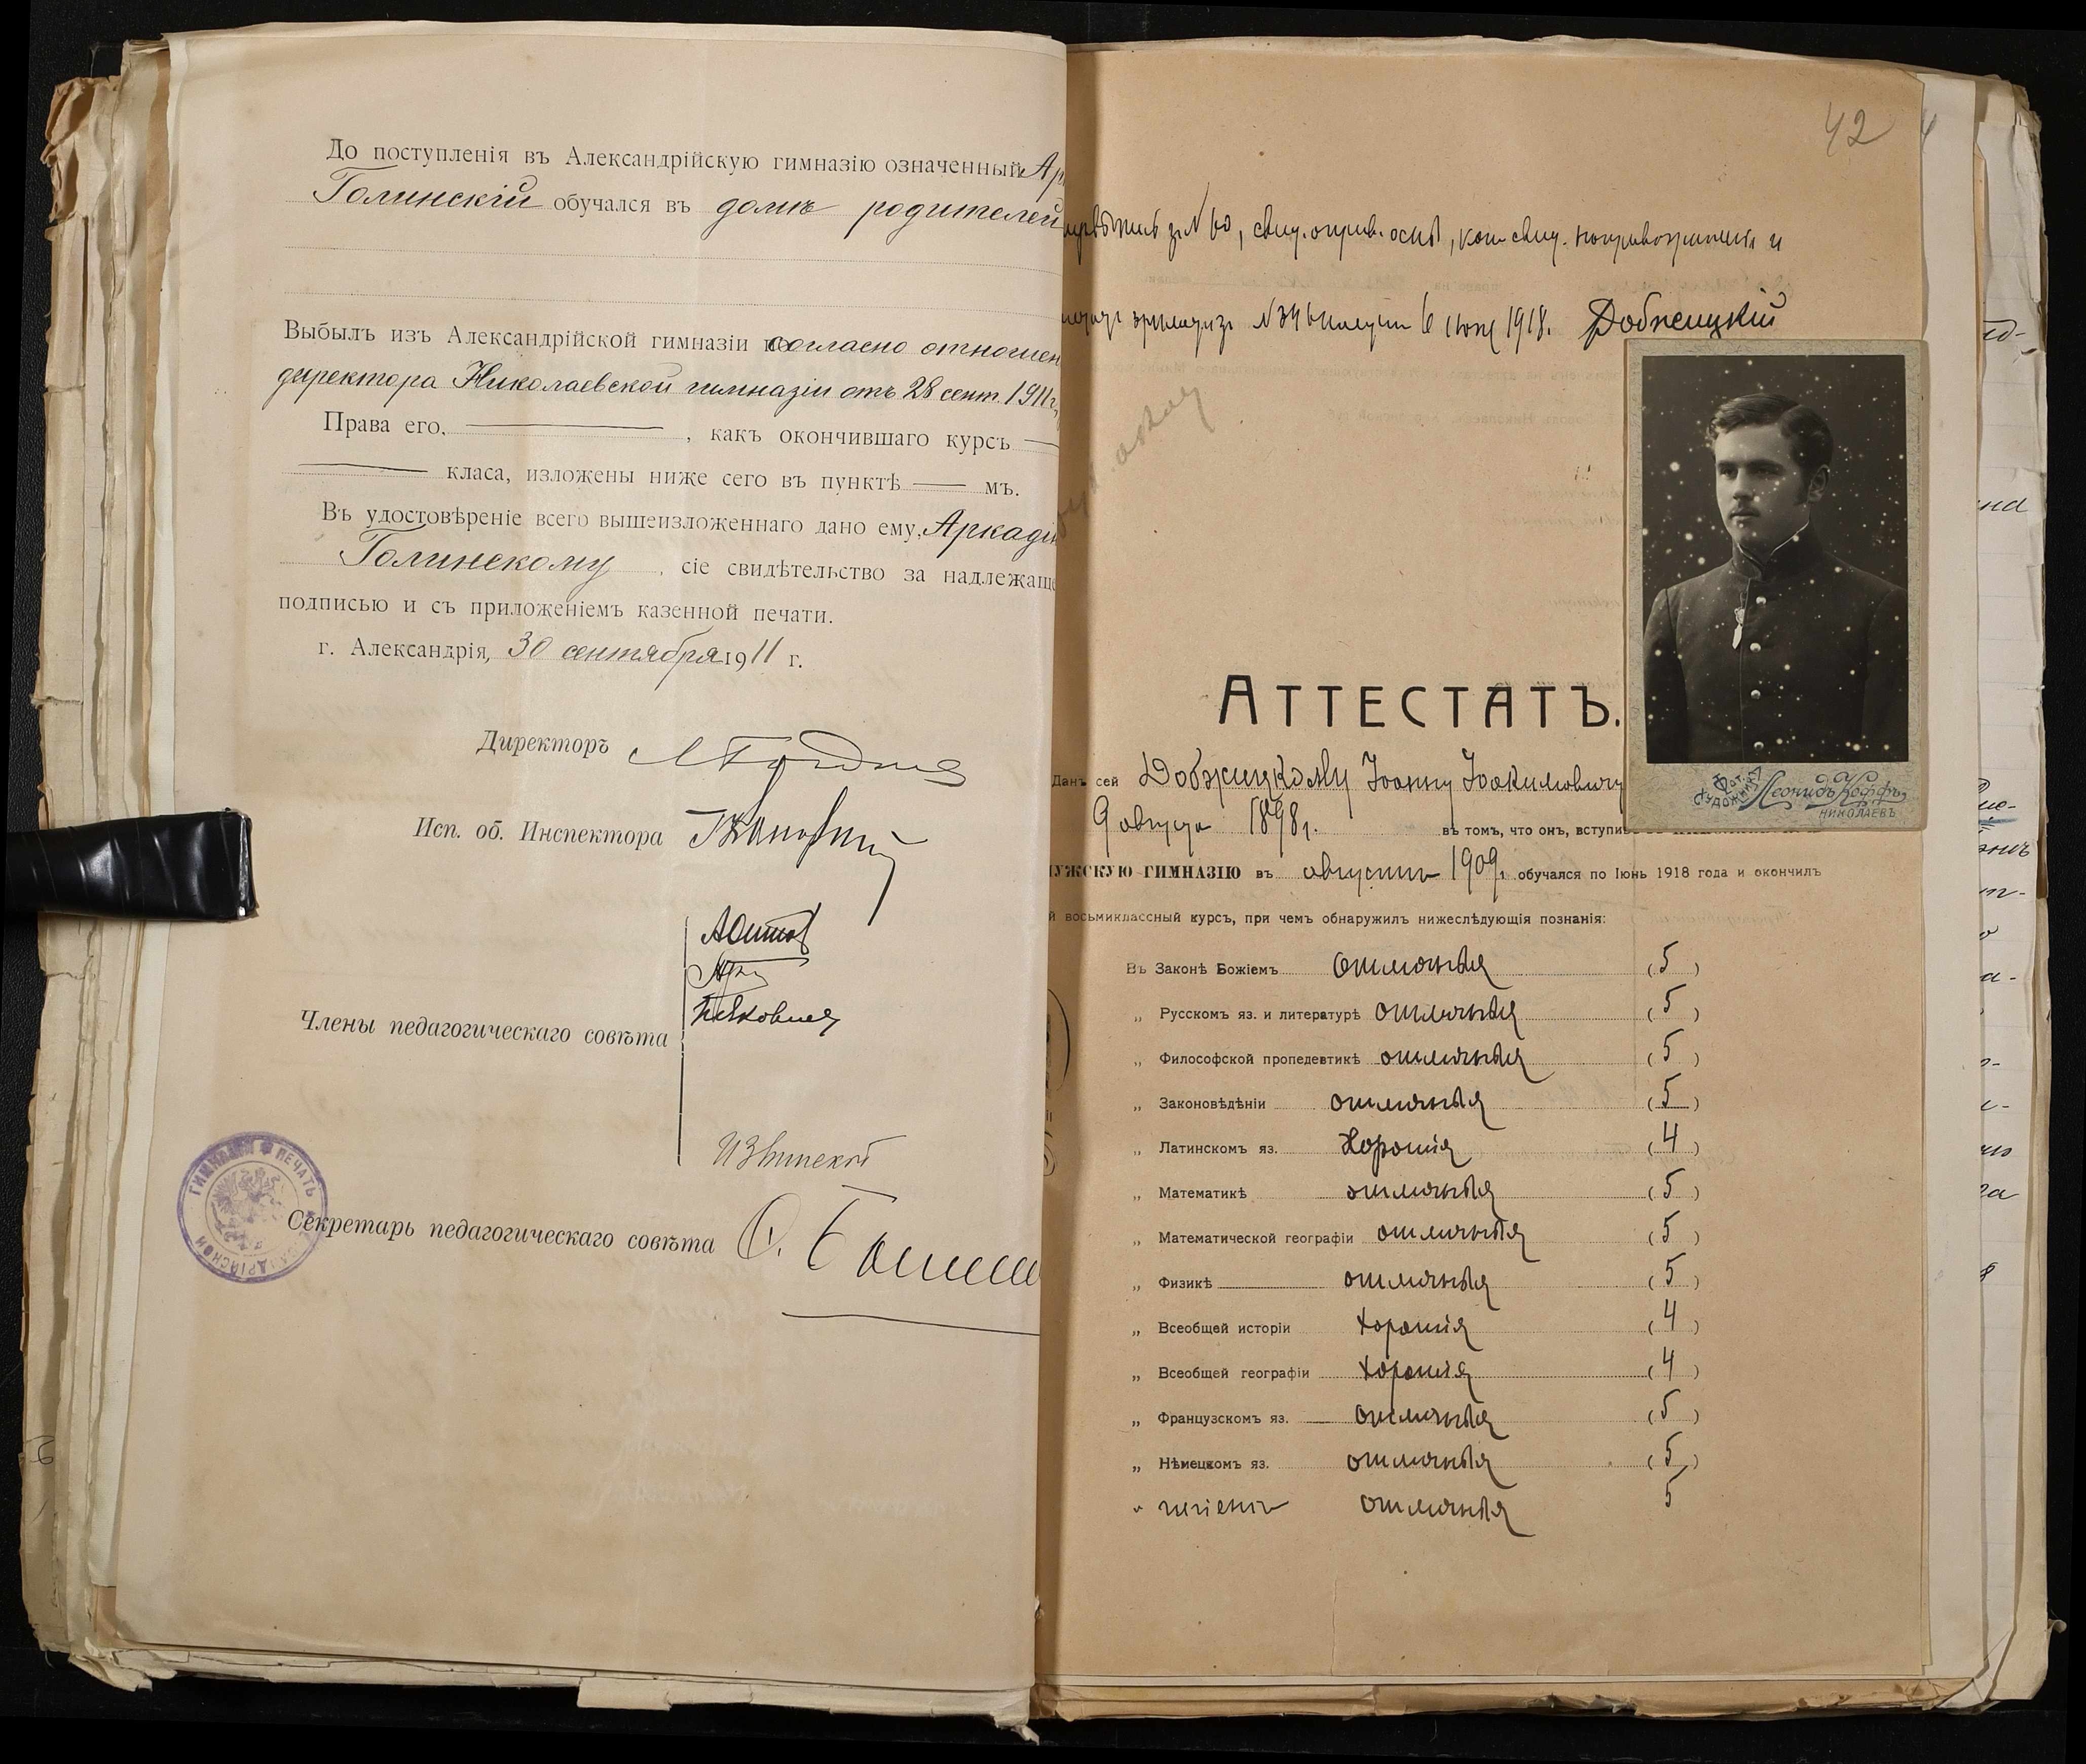 До поступленія въ Александрійскую гимназію означенный
Голинскій обучался въ домѣ родителей
Выбылъ изъ Александрійской гимназіи согласно отношен
директора Николаевской гимназіи отъ 28 сент. 1911 г.,
Права его, , какъ окончившаго курсъ
класа, изложены ниже сего въ пунктѣ мъ.
Въ удостовѣреніе всего вышеизложеннаго дано ему, Аркадію
Голинскому, сіе свидѣтельство за надлежаще
подписью и съ приложеніемъ казенной печати.
г. Александрія, 30 сентября 1911 г.
Директоръ
Исп. об. Инспектора
Члены педагогическаго совѣта
Секретарь педагогическаго совѣта
ГИМНАЗІИ ПЕЧАТЬ
42
№ 60, свид. о прив. оспѣ,
№ 346 получилъ 6 іюня 1918. Добжицкій
АТТЕСТАТЪ.
Данъ сей Добжицкому Іоанну Іоакимовичу
9 августа 1898 г. въ томъ, что онъ, вступи
МУЖСКУЮ ГИМНАЗІЮ въ августѣ 1909 г. обучался по Іюнь 1918 года и окончилъ
й восьмиклассный курсъ, при чемъ обнаружилъ нижеслѣдующія познанія:
Въ Законѣ Божіемъ отличныя (5)
„ Русскомъ яз. и литературѣ отличныя (5)
„ Философской пропедевтикѣ отличныя (5)
„ Законовѣдѣніи отличныя (5)
„ Латинскомъ яз. Хорошія (4)
„ Математикѣ отличныя (5)
„ Математической географіи отличныя (5)
„ Физикѣ отличныя (5)
„ Всеобщей исторіи хорошія (4)
„ Всеобщей географіи хорошія (4)
„ Французскомъ яз. отличныя (5)
„ Нѣмецкомъ яз. отличныя (5)
„ отличныя 5
Фот. Художникъ Леонидъ Коффъ
НИКОЛАЕВЪ